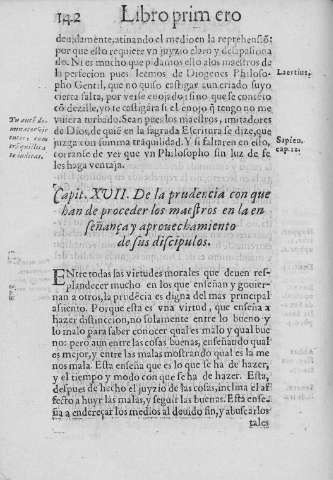 142 Libro primero
deuidamente, atinando el medio en la reprehensiō:
por que esto requiere vn juyzio claro y desapasiona
do. Ni es mucho que pidamos ello alos maestros de
la perfecion pues leemos de Diogenes Philoso-
pho Gentil, que no quiso castigar a vn criado suyo
cierta falta, por verse enojado; sino que se conociē
do dezialle, yo te castigára si el enojo q̄ tengo no me
vuiera turbado. Sean pues los maestros, imitadores
de Dios, de quiē en la sagrada Escritura se dize, que
juzga con summa trāquilidad. Y si faltaren en ello,
corranse de ver que vn Philosopho sin luz de fe
les haga ventaja.
Laertius.
Sapien.
cap. 12.
Capit. XVII. De la prudencia con que
han de proceder los maestros en la en
señança y aprouechamiento
de sus discipulos.
ENtre todas las virtudes morales que deuen res-
plandecer mucho en los que enseñan y gouier-
nan a otros, la prudēcia es digna del mas principal
assiento. Porque esta es vna virtud, que enseña a
hazer distinccion, no solamente entre lo bueno y
lo malo para saber conocer qual es malo y qual bue
no: pero aun entre las cosas buenas, enseñando qual
es mejor, y entre las malas mostrando qual es la me
nos mala. Esta enseña que es lo que se ha de hazer,
y el tiempo y modo con que se ha de hazer. Esta,
despues de hecho el juyzio de las cosas, inclina el af
fecto a huyr las malas, y seguir las buenas. Esta ense-
ña a endereçar los medios al deuido fin, y abuscarlos
tales